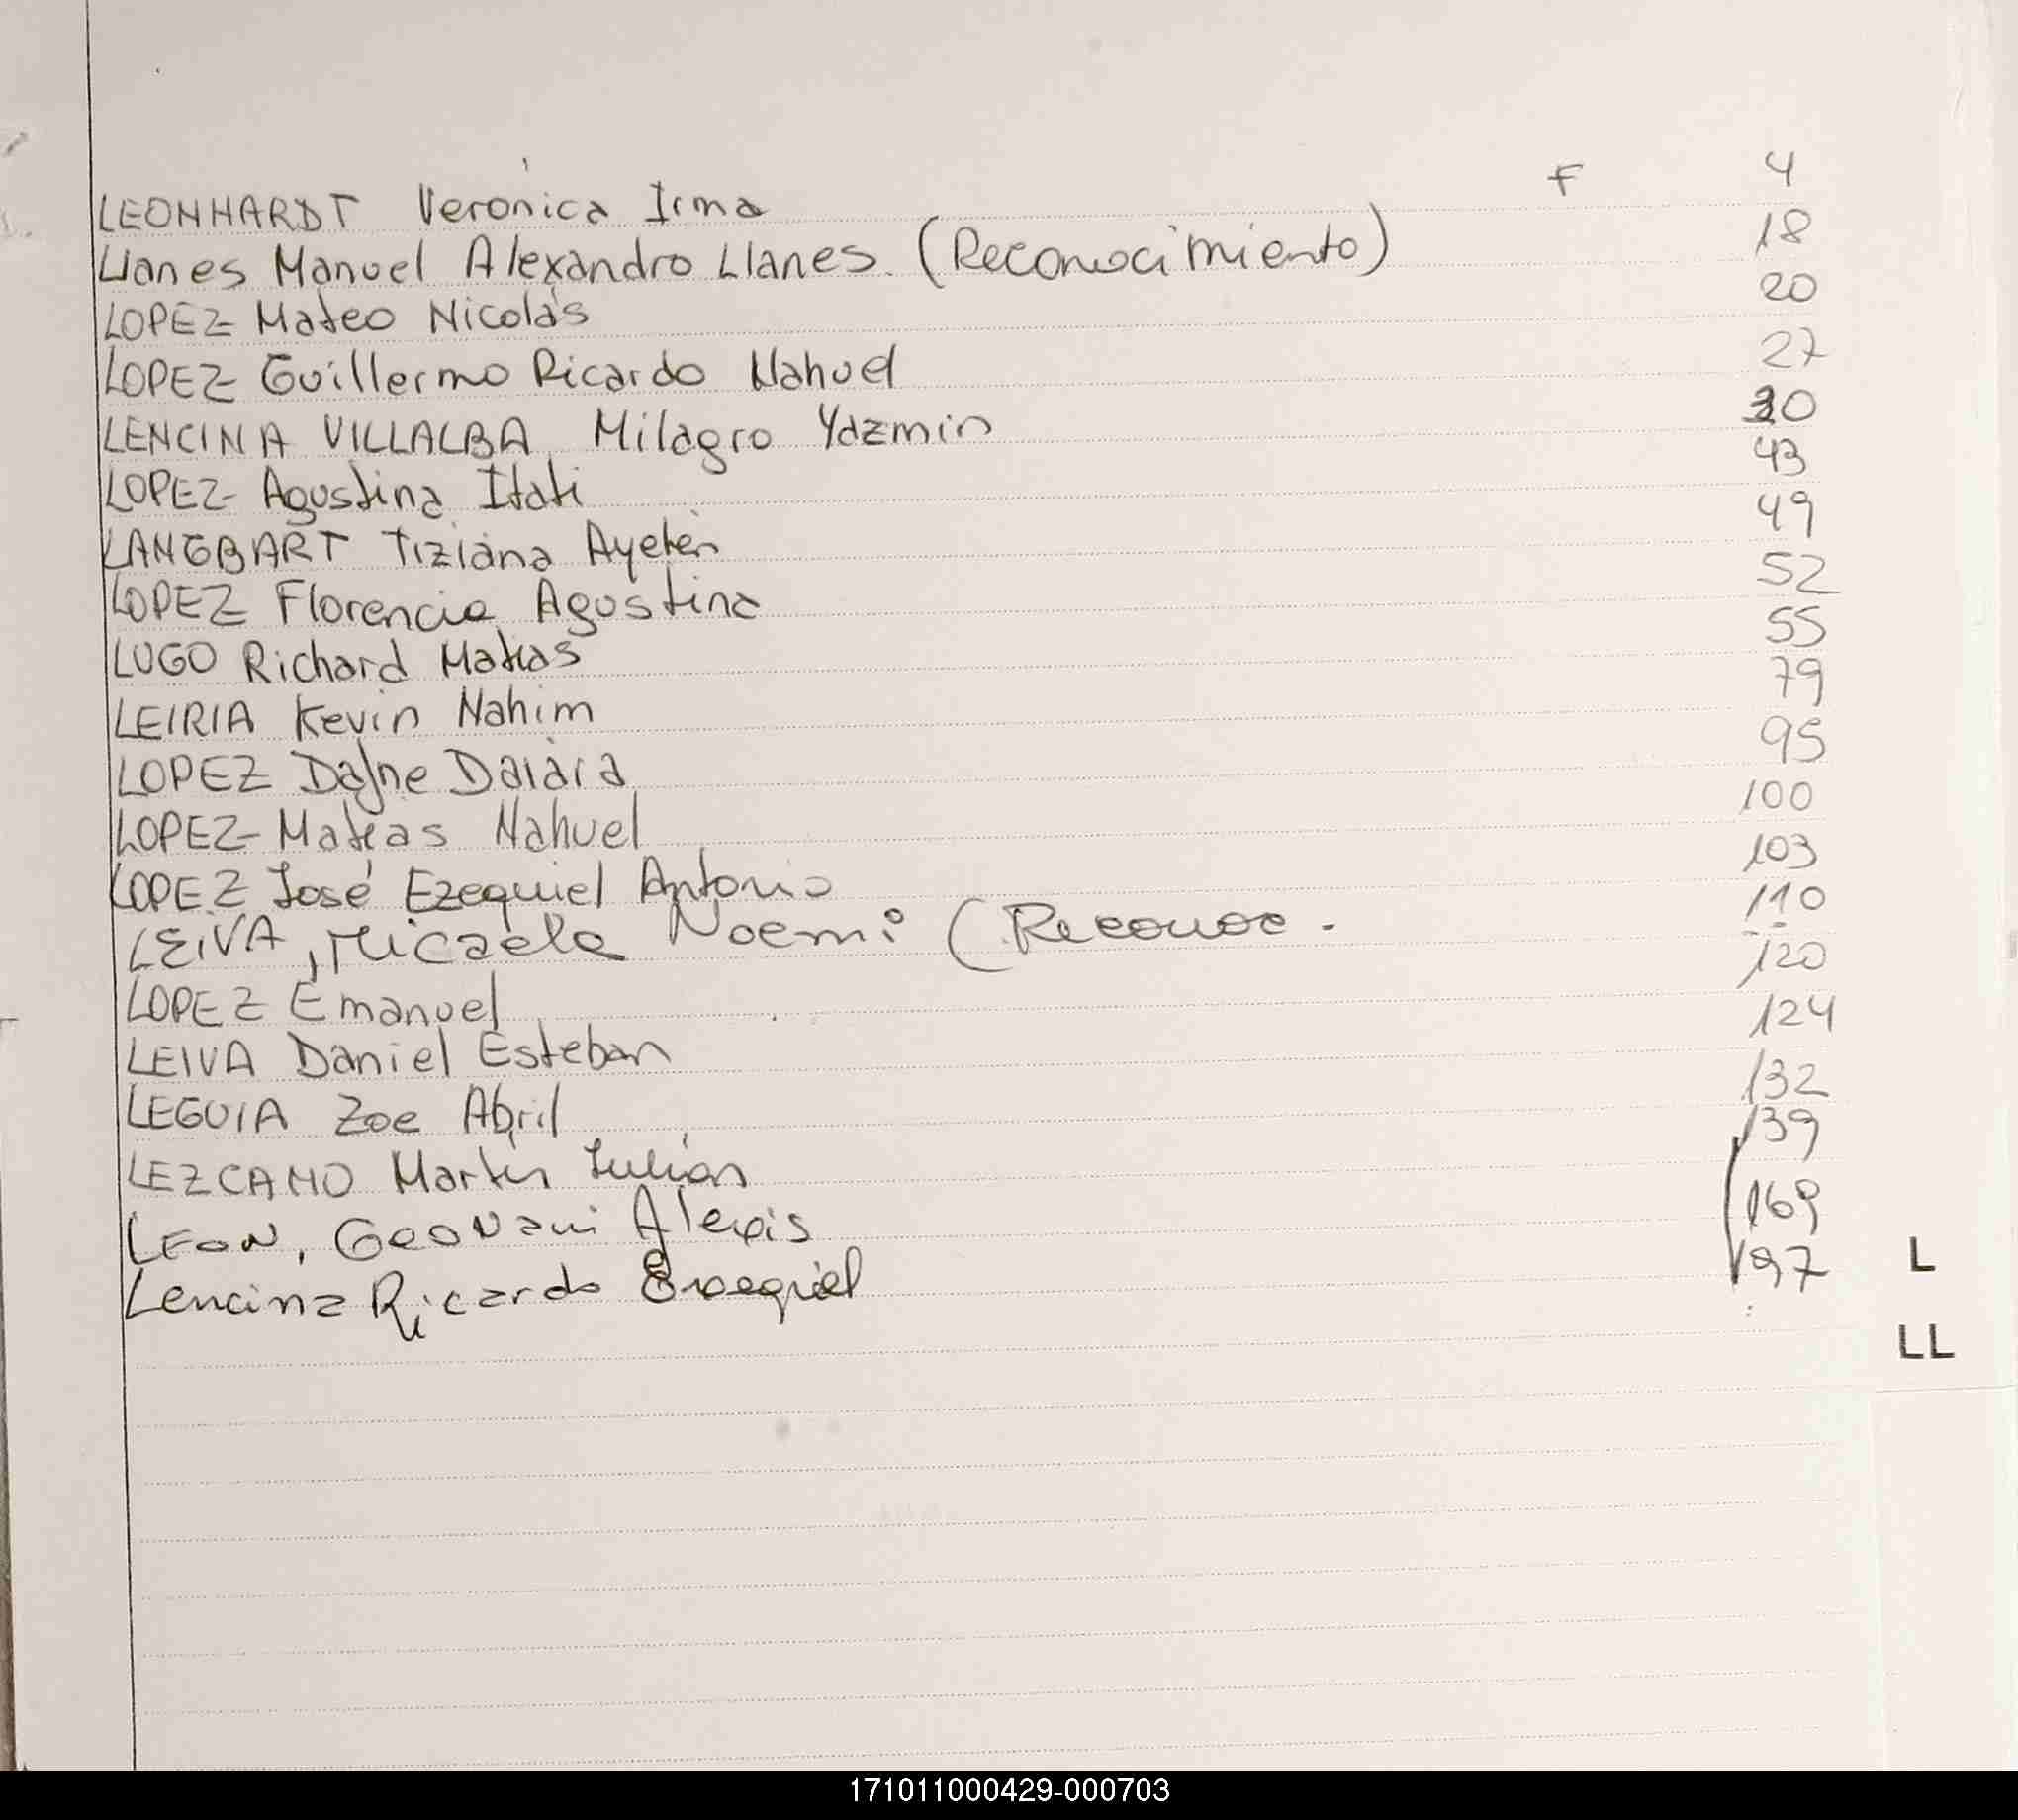 LEONHARDT Veronica Irma F 4
Llanes Manuel Alexandro Llanes. (Reconocimiento) 18
LOPEZ Mateo Nicolás 20
LOPEZ Guillermo Ricardo Nahuel 27
LENCINA VILLALBA Milagro Yazmin 30
LOPEZ Agustina Itati 43
LANGBART Tiziana Ayelén 49
LOPEZ Florencia Agustina 52
LUGO Richard Matias 55
LEIRIA Kevin Nahim 79
LOPEZ Dafne Daiara 95
LOPEZ Matias Nahuel 100
LOPEZ José Ezequiel Antonio 103
LEIVA, Micaela Noemi (Reconoc. 110
LOPEZ Emanuel 120
LEIVA Daniel Esteban 124
LEGUIA Zoe Abril 132
LEZCANO Martin Julián 139
LEON, Geovani Alexis 169
Lencina Ricardo Exequiel 197
L
LL
171011000429-000703